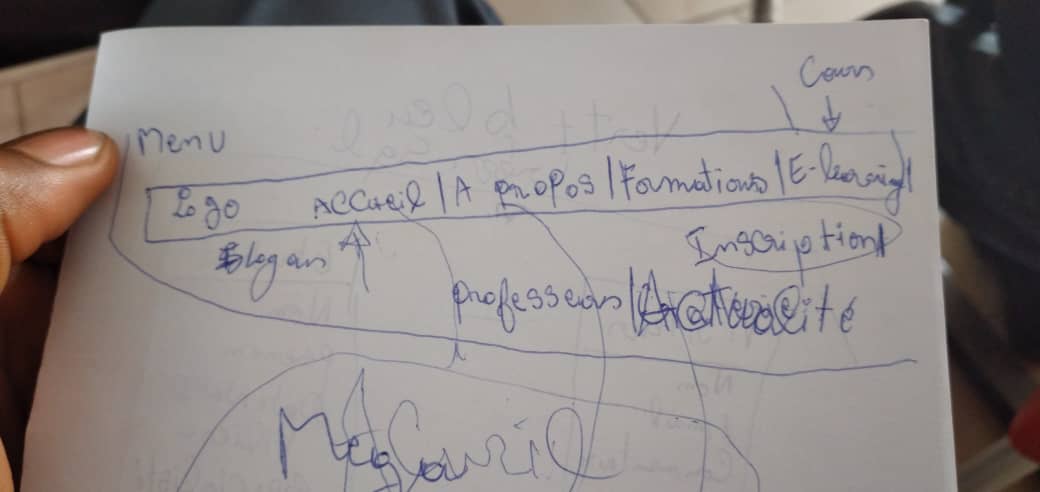 Cours
Menu
Logo Accueil | A propos | Formations | E-learning |
Slogan Inscription
professeurs | Actualité